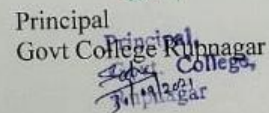 Principal
Govt College Rupnagar
Principal,
Govt. College,
Rupnagar